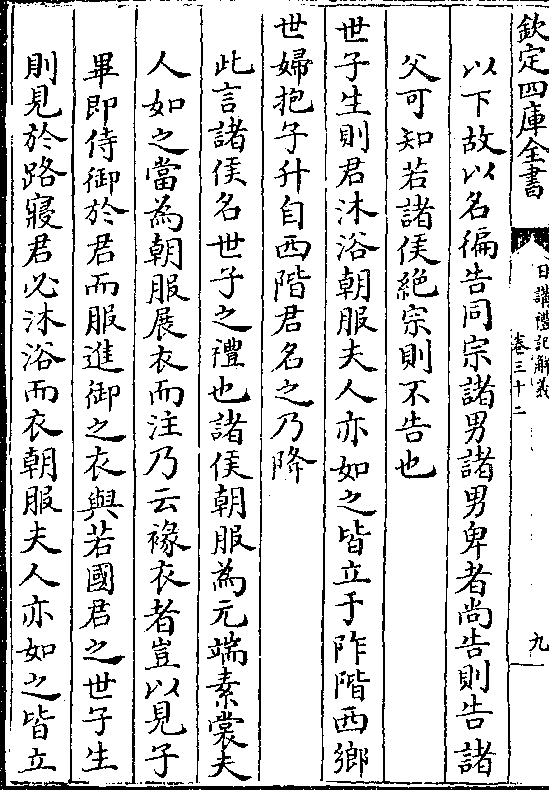 欽定四庫全書
日講禮記解義
卷三十二
九
以下故以名徧告同宗諸男諸男卑者尚告則告諸
父可知若諸侯絶宗則不告也
世子生則君沐浴朝服夫人亦如之皆立于阼階西鄉
世婦抱子升自西階君名之乃降
此言諸侯名世子之禮也諸侯朝服為元端素裳夫
人如之當為朝服展衣而注乃云褖衣者豈以見子
畢即侍御於君而服進御之衣與若國君之世子生
則見於路寢君必沐浴而衣朝服夫人亦如之皆立